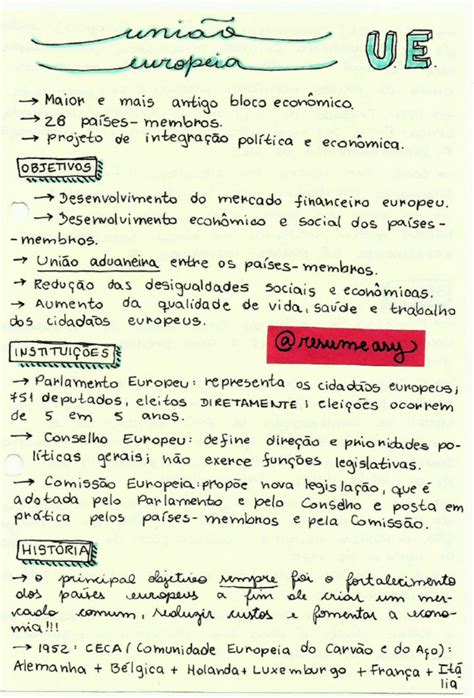 união
europeia
U.E.
→ Maior e mais antigo bloco econômico.
→ 28 países-membros.
→ projeto de integração política e econômica.
OBJETIVOS
→ Desenvolvimento do mercado financeiro europeu.
→ Desenvolvimento econômico e social dos países-
-membros.
→ União aduaneira entre os países-membros.
→ Redução das desigualdades sociais e econômicas.
→ Aumento da qualidade de vida, saúde e trabalho
dos cidadãos europeus.
@resumeasy
INSTITUIÇÕES
→ Parlamento Europeu: representa os cidadãos europeus;
751 deputados, eleitos DIRETAMENTE; eleições ocorrem
de 5 em 5 anos.
→ Conselho Europeu: define direção e prioridades po-
líticas gerais; não exerce funções legislativas.
→ Comissão Europeia: propõe nova legislação, que é
adotada pelo Parlamento e pelo Conselho e posta em
prática pelos países-membros e pela Comissão.
HISTÓRIA
→ o principal objetivo sempre foi o fortalecimento
dos países europeus a fim de criar um mer-
cado comum, reduzir custos e fomentar a econo-
mia!!!
→ 1952: CECA (Comunidade Europeia do Carvão e do Aço):
Alemanha + Bélgica + Holanda + Luxemburgo + França + Itá
lia